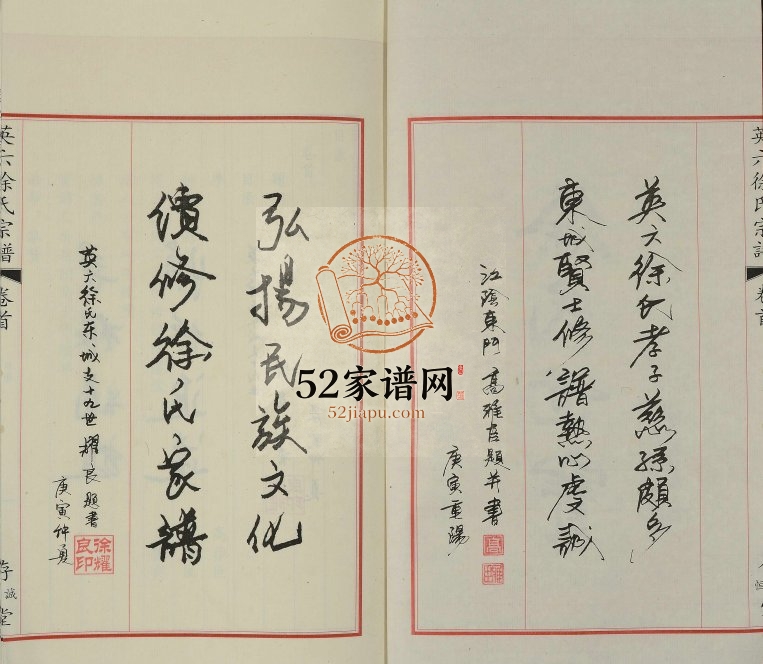 英六徐氏宗譜
卷首
英六徐氏孝子慈孫頗多
東城賢士修譜熱心虔誠
江陰東門 題并書
庚寅重陽
弘揚民族文化
續修徐氏家譜
英六徐氏东城支十九世耀良题書
庚寅仲夏
徐耀良印
英六徐氏宗譜
卷首
存誠堂
52家谱网
52jiapu.com